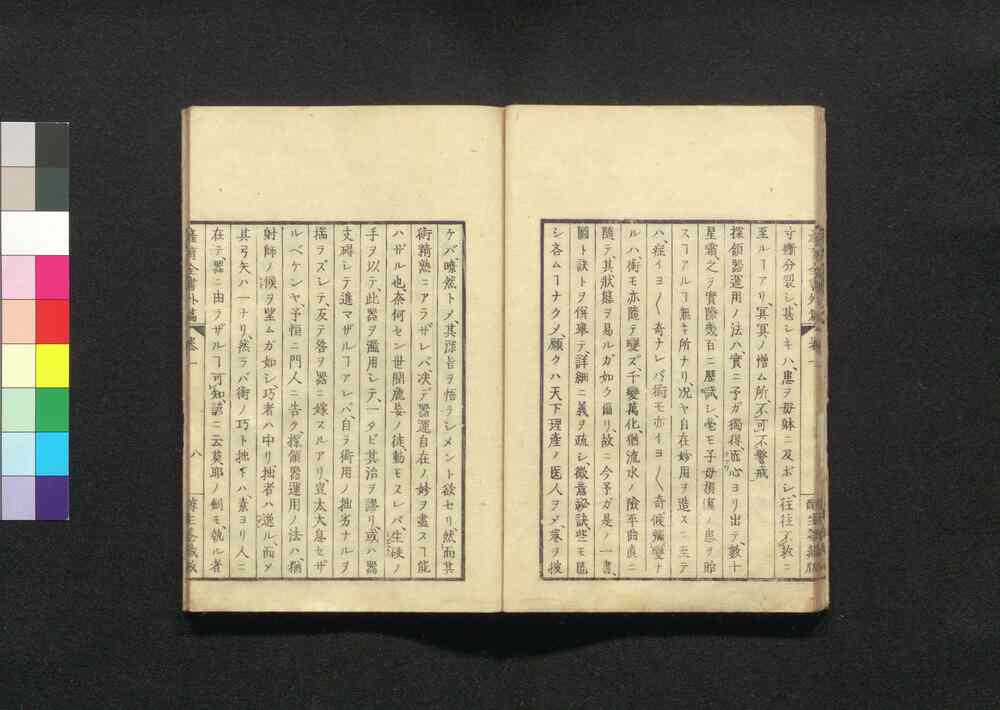 寸斷分裂シ、甚シキハ、患ヲ毋躰ニ及ボシ、往往不救ニ
至ルヿアリ、冥冥ノ憎ム所、不可不警戒
探頷器運用ノ法ハ、實ニ予ガ獨得、匠心ヨリ出テ、數十
星霜、之ヲ實際幾百ニ歴試シ、毫モ子毋損傷ノ患ヲ貽
スヿアルヿ無キ所ナリ、况ヤ自在妙用ヲ造スニ至テ
ハ、症イヨ〱奇ナレバ、術モ亦イヨ〱奇、候
ルハ、術モ亦隨テ變ズ、千變萬化、猶流水ノ險平曲直ニ
隨テ、其狀態ヲ易ルガ如ク爾リ、故ニ今予ガ是ノ一書、
圖ト訣トヲ併擧テ、詳細ニ義ヲ疏シ、微意祕訣、些モ匿
シ吝ムヿナクメ、願クハ天下理産ノ医人ヲメ、卷ヲ披
ケバ、瞭然トメ、其深旨ヲ悟ラシメント欲セリ、然而其
術精熟ニアラザレバ、决テ器運自在ノ妙ヲ盡スヿ能
ハザル也、奈何セン世間麁妄ノ徒、動モスレバ、生硬ノ
手ヲ以テ、此器ヲ濫用シテ、一タビ其治ヲ謬リ、或ハ器
支碍シテ進マザルヿアレバ、自ラ術用ノ拙劣ナルヲ
揣ラズシテ、反テ咎ヲ器ニ嫁スルアリ、豈太大息セザ
ルベケンヤ、予恒ニ門人ニ告ク、探頷器運用ノ法ハ、猶
射師ノ候ヲ望ムガ如シ、巧者ハ中リ、拙者ハ逸ル、而メ
其弓矢ハ一ナリ、然ラバ術ノ巧ト拙トハ、素ヨリ人ニ
在テ、器ニ由ラザルヿ可知、諺ニ云、莫耶ノ劍モ、執ル者
産育全書外篇 卷一 八